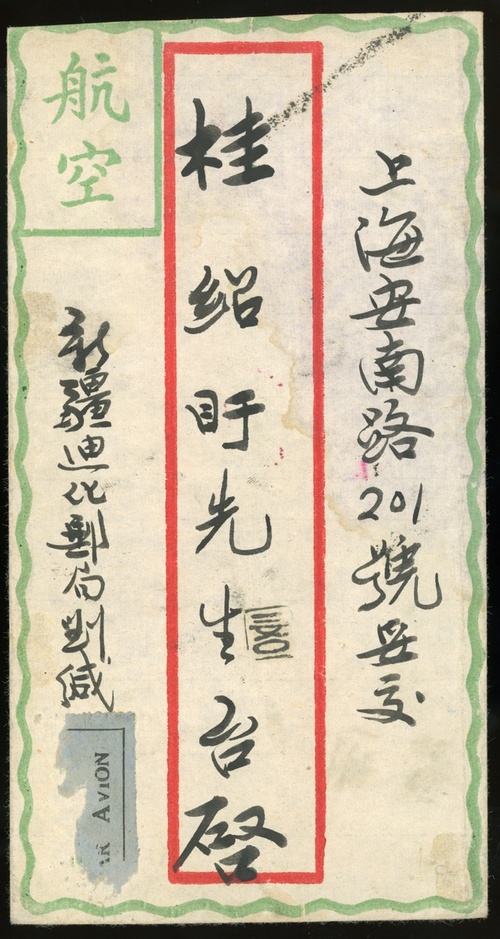 上海安南路201號妥交
桂紹盱先生台啓
航空
新疆迪化郵局劉緘
AVION